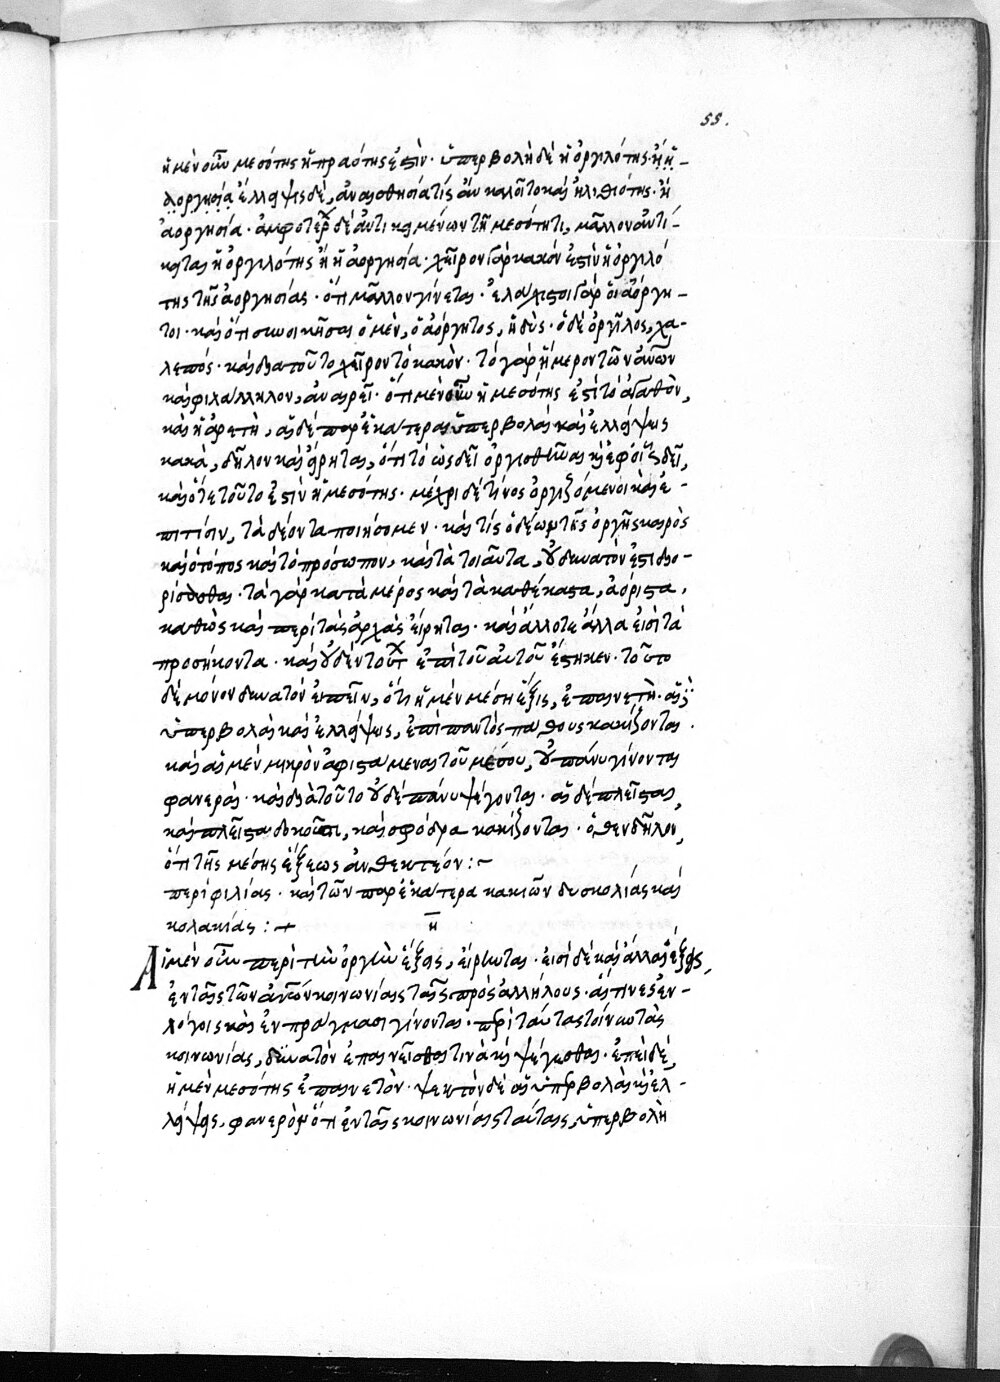 55.
ἡ μὲν οὖν μεσότης ἡ πραότης ἐστὶν· ὑπερβολὴ δὲ ἡ ὀργιλότης· ἢ ἡ
ἀοργησία ἔλλειψις δὲ, ἀναισθησία τίς ἂν καλοῖτο καὶ ἠλιθιότης· ἢ
ἀοργησία· ἀμφοτέρων δὲ ἀντικειμένων τῇ μεσότητι, μᾶλλον ἀντί-
κειται ἡ ὀργιλότης ἢ ἡ ἀοργησία· χεῖρον γὰρ κακόν ἐστὶν ἡ ὀργιλό
της τῆς ἀοργησίας· ὅτι μᾶλλον γίνεται· ἐλάχιστοι γὰρ οἱ ἀόργη-
τοι· καὶ ὅτι συνοικῆσαι ὁ μὲν, ὁ ἀόργητος, ἡδύς· ὁ δὲ ὀργῖλος, χα-
λεπός· καὶ διὰ τοῦτο χεῖρον τὸ κακὸν· τὸ γὰρ ἥμερον τῶν ἀνων
καὶ φιλάλληλον, ἀναιρεῖ· ὅτι μὲν οὖν ἡ μεσότης ἐστὶ τὸ ἀγαθὸν,
καὶ ἡ ἀρετὴ, αἱ δὲ παρ' ἑκάτερα ὑπερβολαὶ καὶ ἐλλείψεις
κακὰ, δῆλον καὶ εἴρηται, ὅτι τὸ ὡς δεῖ ὀργισθῆναι καὶ ἐφ' οἷς δεῖ,
καὶ ὅτε τοῦτο ἐστὶν ἡ μεσότης· μέχρι δὲ τίνος ὀργιζόμενοι καὶ ἐ-
πὶ τίσιν, τὰ δέοντα ποιήσομεν· καὶ τίς ὁ δέων τῆς ὀργῆς καιρὸς
καὶ ὁ τόπος καὶ τὸ πρόσωπον, καὶ τὰ τοιαῦτα, οὐ δυνατὸν ἐστι διο-
ρίσασθαι· τὰ γὰρ κατὰ μέρος καὶ τὰ καθέκαστα, ἀόριστα,
καθὼς καὶ περὶ τὰς ἀρχὰς εἴρηται· καὶ ἄλλοτε ἄλλα εἰσὶ τὰ
προσήκοντα· καὶ οὐδὲν τούτων ἐπὶ τοῦ αὐτοῦ ἕστηκεν· τοῦτο
δὲ μόνον δυνατὸν εἰπεῖν, ὅτι ἡ μὲν μέση ἕξις, ἐπαινετὴ· αἱ δ'
ὑπερβολαὶ καὶ ἐλλείψεις, ἐπὶ παντὸς πάθους κακίζονται.
καὶ αἱ μὲν μικρὸν ἀφιστάμεναι τοῦ μέσου, οὐ πάνυ γίνονται
φανεραὶ· καὶ διὰ τοῦτο οὐδὲ πάνυ ψέγονται· αἱ δὲ πλεῖσται,
καὶ πλεῖστα δοκοῦσι, καὶ σφόδρα κακίζονται· ὅθεν δῆλον,
ὅτι τῆς μέσης ἕξεως ἀνθεκτέον:~
περὶ φιλίας· καὶ τῶν παρ' ἑκάτερα κακιῶν δυσκολίας καὶ
κολακείας:+ η
Αἱ μὲν οὖν περὶ τὴν ὀργὴν ἕξεις, εἴρηνται· εἰσὶ δὲ καὶ ἄλλαι ἕξεις,
ἐν ταῖς τῶν ἀνων κοινωνίαις ταῖς πρὸς ἀλλήλους· αἵτινες ἐν-
λόγοις καὶ ἐν πράγμασι γίνονται· περὶ ταύτας τοίνυν τὰς
κοινωνίας, δυνατὸν ἐπαινεῖσθαι τινὰ καὶ ψέγεσθαι· ἐπεὶ δὲ,
ἡ μὲν μεσότης ἐπαινετὸν· ψεκτὸν δὲ αἱ ὑπερβολαὶ καὶ ἐλ-
λείψεις, φανερὸν ὅτι ἐν ταῖς κοινωνίαις ταύταις, ὑπερβολὴ